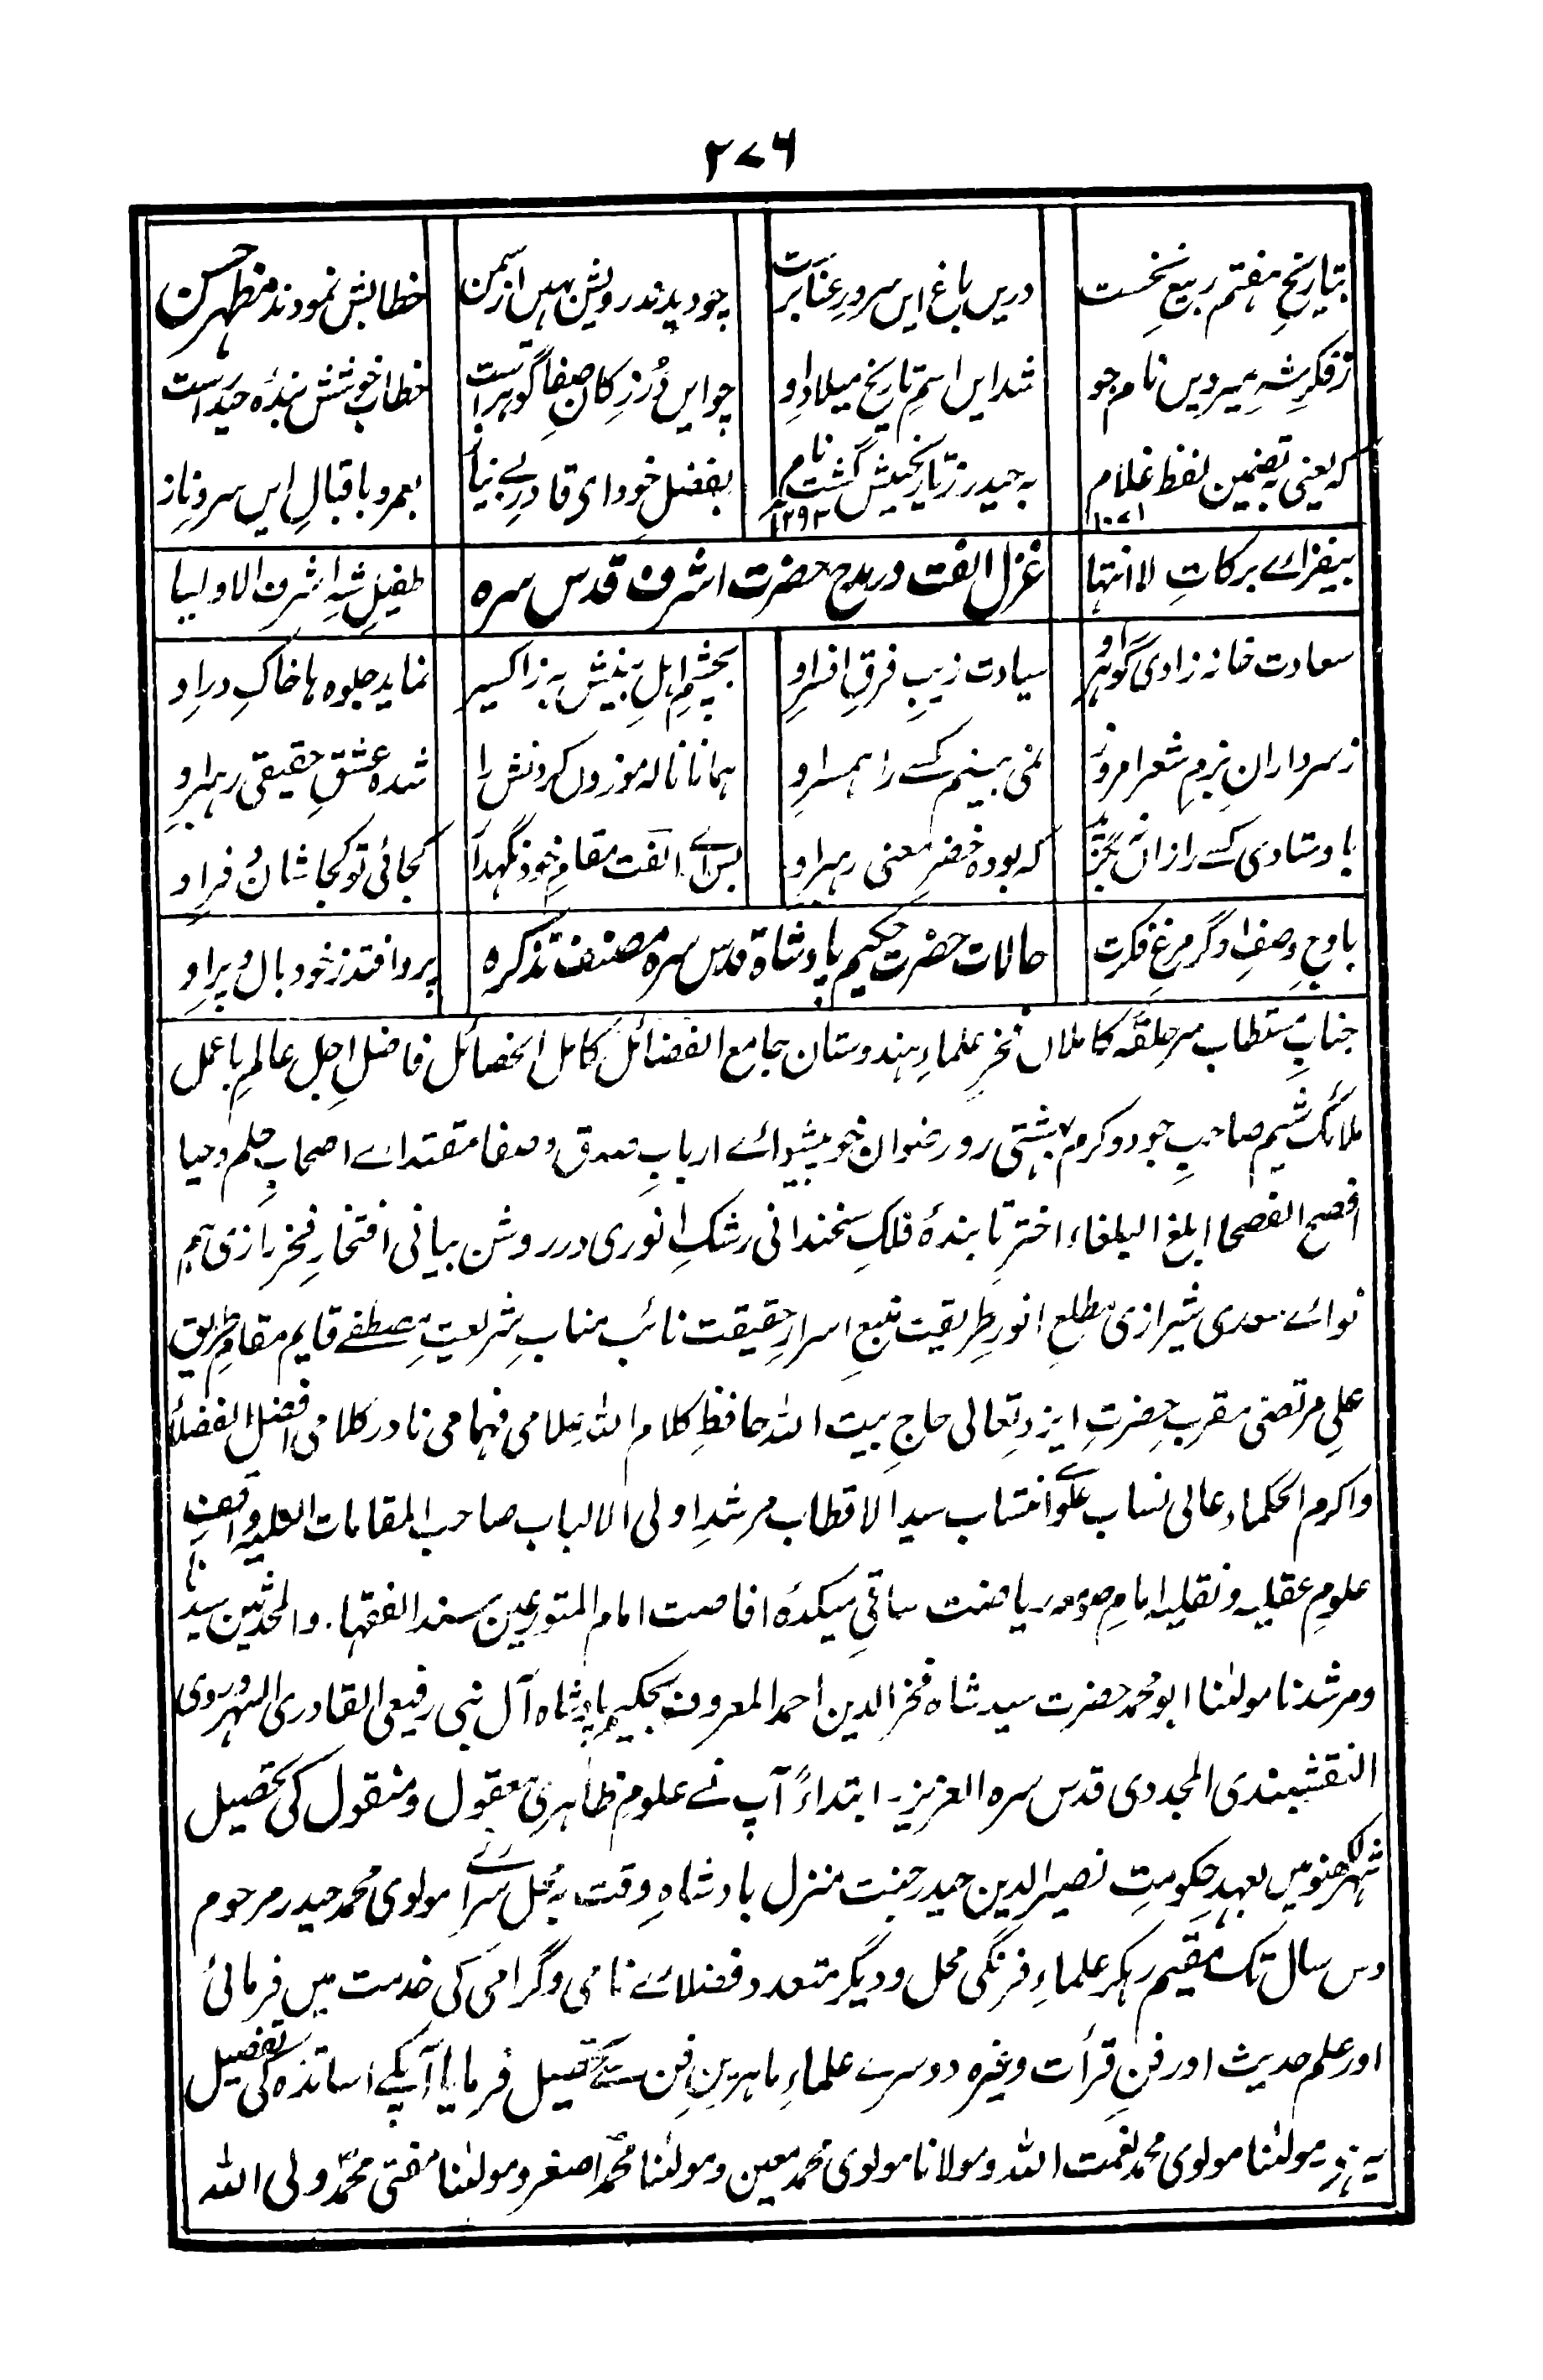 ۲۷۶
بتاریخِ ہفتم ربیعِ نخست دریں باغ ایں سرورِ عنابرست چو دیدند رویش بہیں از سمن خطابش نمودند مظہر حسن
ز فکرِ شہِ میر دیں نام جو شد ایں اسمِ تاریخِ میلادِ او چو ایں دُر ز کانِ صفا گوہر است خطابِ خوشش بندہ حیدر است
کہ یعنی بہ تضمین لفظ غلام بہ حیدر ز تاریخیش گشت نام بفضلِ خود ای قادرِ بے نیاز بعمر و باقبالِ ایں سرو ناز
۱۰۷۱ ۱۲۹۳
بیفزاے برکاتِ لا انتہا غزل الفت در مدح حضرت اشرف قدس سرہ طفیلِ شہ اشرف الاولیا
سعادت خانہ زادی گوہرِ او سیادت زیبِ فرقِ افسرِ او بچشمِ اہلِ بینش بہ ز اکسیر نماید جلوہ ہا خاکِ درِ او
ز سردارانِ بزمِ شعر امروز نمی بینم کسے را ہمسرِ او ہمانا نالہ موزوں کردنش را شدہ عشقِ حقیقی رہبرِ او
باوستادی کسے را زاں کہ بودہ خضرِ معنی رہبرِ او بس اے الفت مقامِ خود نگہدار کجائی تو کجا شان و فرِ او
باوجِ وصفِ او گر مرغِ فکرت حالات حضرت حکیم بادشاہ قدس سرہ مصنف تذکرہ پرد افتد ز خود بال و پرِ او
جنابِ مستطاب سرحلقۂ کاملاں فخرِ علماءِ ہندوستان جامع الفضائل کامل الخصائل فاضلِ اجل عالمِ باعمل
ملائک شیم صاحبِ جود و کرم بہشتی رو رضوان خو پیشوائے اربابِ صدق و صفا مقتداے اصحابِ حلم و حیا
افصح الفصحا ابلغ البلغاء اخترِ تابندۂ فلکِ سخندانی رشکِ انوری در روشن بیانی افتخارِ فخرِ رازی ہم
نوائے سعدی شیرازی مطلعِ انورِ طریقت منبعِ اسرارِ حقیقت نائب مناب شریعتِ مصطفےٰ قایم مقامِ طریق
علیِ مرتضیٰ مقربِ حضرتِ ایزدِ تعالیٰ حاجِ بیت اللہ حافظِ کلام اللہ علامی فہامی نادر کلامی افضل الفضلاء
واکرم الحکماء عالی نساب علوے انتساب سید الاقطاب مرشدِ اولی الالباب صاحب المقامات العلیہ واقفِ
علومِ عقلیہ و نقلیہ امامِ صومعہ ریاضت ساقیِ میکدہ افاضت امام المتورعین سند الفقہا، والمحدثین سیدنا
ومرشدنا مولٰنا ابو محمد حضرت سید شاہ فخرالدین احمد المعروف بحکیم بادشاہ آل نبی رفیعی القادری السہروردی
النقشبندی المجددی قدس سرہ العزیز۔ ابتداءً آپ نے علومِ ظاہریِ معقول و منقول کی تحصیل
شہر لکھنو میں بعہدِ حکومتِ نصیرالدین حیدر جنت منزل بادشاہِ وقت بہ محل سراے مولوی محمد حیدر مرحوم
دس سال تک مقیم رہکر علماءِ فرنگی محل و دیگر متعدد فضلائے نامی و گرامی کی خدمت میں فرمائی
اور علم حدیث اور فنِ قرأت وغیرہ دوسرے علماءِ ماہرینِ فن سے تحصیل فرمایا آپکے اساتذہ کی تفصیل
یہ ہے۔ مولٰنا مولوی محمد نعمت اللہ و مولانا مولوی محمد معین و مولٰنا محمد اصغر و مولٰنا مفتی محمد ولی اللہ